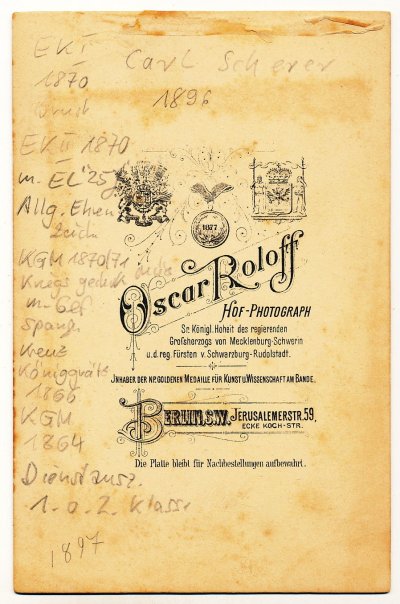 Carl Scherer
1896
EK I
1870
EK II 1870
m. EL "25"
Allg. Ehren
zeich
KGM 1870/71
Kriegs gedenk
m. Gef
Spang.
Kreuz
Königgrätz
1866
KGM
1864
Dienstausz.
1. o. 2. Klasse
1897
1877
Oscar Roloff
HOF-PHOTOGRAPH
Sr. Königl. Hoheit des regierenden
Großherzogs von Mecklenburg-Schwerin
u. d. reg. Fürsten v. Schwarzburg-Rudolstadt.
JNHABER DER NP. GOLDENEN MEDAILLE FÜR KUNST U. WISSENSCHAFT AM BANDE.
BERLIN.S.W. JERUSALEMERSTR. 59,
ECKE KOCH-STR.
Die Platte bleibt für Nachbestellungen aufbewahrt.